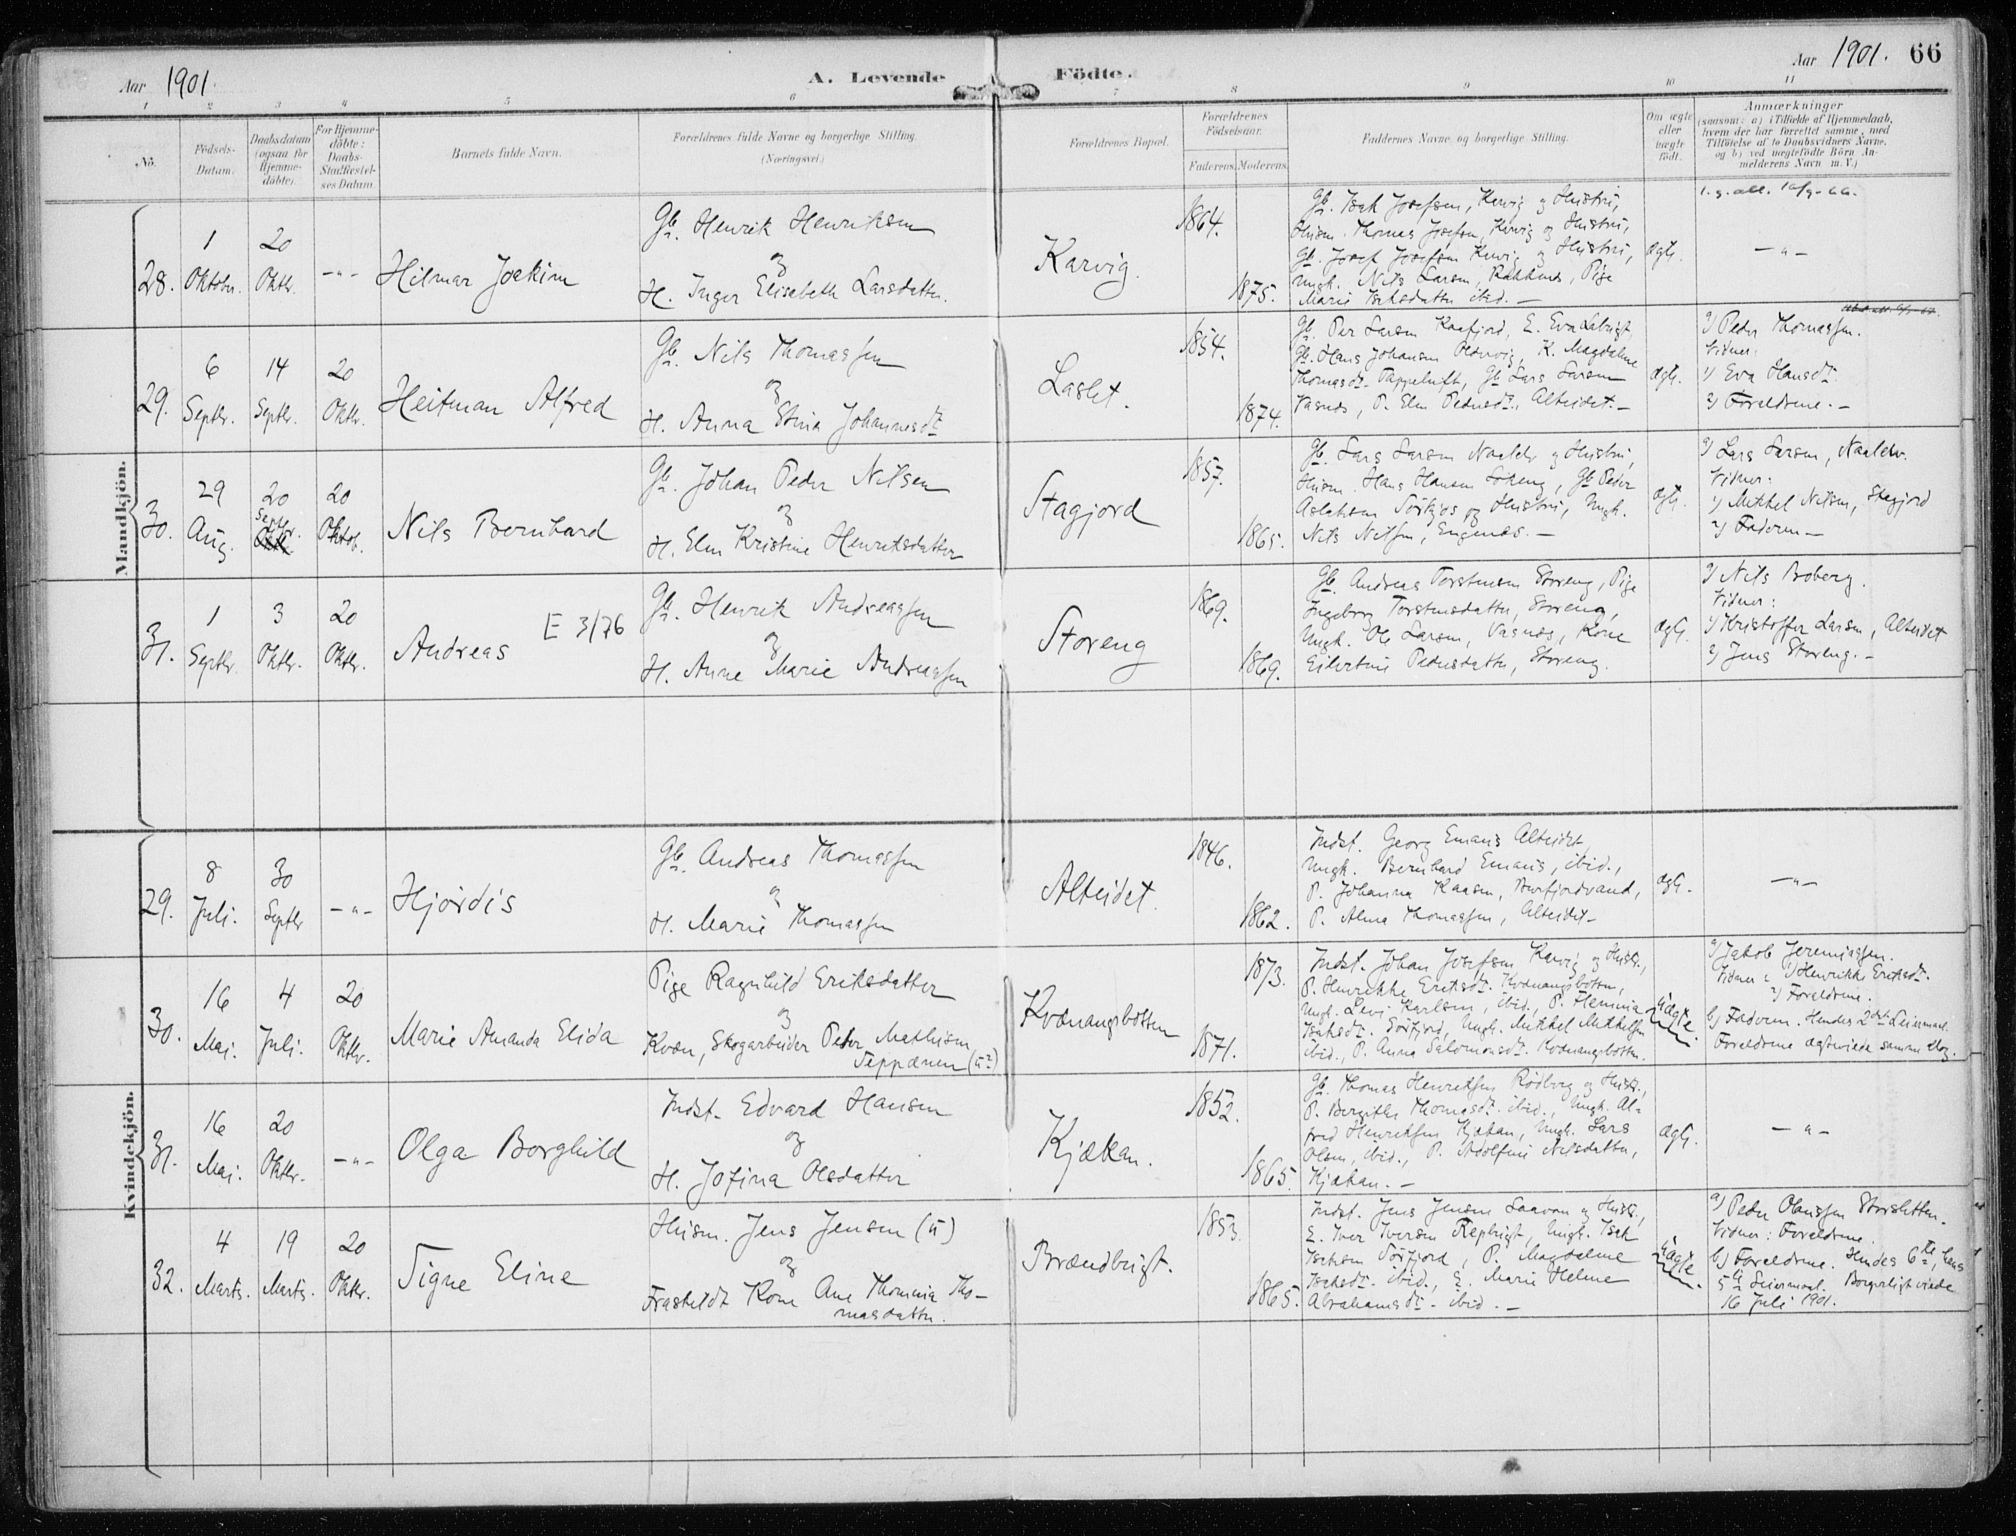 Aar 1901.
A. Levende Födte.
Aar 1901. 66
1 2 3 4 5 6 7 8 9 10 11
No.
Födsels-
Datum.
Daabsdatum
(ogsaa for
Hjemme-
döbte).
For Hjemme-
döbte:
Daabs-
Stadfæstel-
ses Datum.
Barnets fulde Navn.
Forældrenes fulde Navne og borgerlige Stilling.
(Næringsvei.)
Forældrenes Bopæl.
Forældrenes
Födselsaar.
Faderens. Moderens.
Faddernes Navne og borgerlige Stilling.
Om ægte
eller
uægte
født.
Anmærkninger
(saasom: a) i Tilfælde af Hjemmedaab,
hvem der har forrettet samme, med
Tilföielse af to Daabsvidners Navne,
og b) ved uægtefödte Börn An-
melderens Navn m. V.)
Mandkjön.
28.
1
Oktober.
20
Oktbr.
-„-
Hilmar Joakim
Gb. Henrik Henriksen
og
H. Inger Elisabeth Larsdatter.
Karvig.
1864.
1875.
Gb. Isak Josefsen, Karvig og Hustru,
Husm. Thomas Josefsen, Karvig og Hustru,
Gb. Josef Josefsen Karvig og Hustru,
Ungk. Nils Larsen, Rakkenes, Pige
Marie Isaksdatter ibid. -
ægt.
-„-
29.
6
Septbr.
14
Septbr.
20
Oktbr.
Heitman Alfred
Gb. Nils Thomassen
og
H. Anna Stina Johannesdt
Laslet.
1854.
1874.
Gb. Per Larsen Kaafjord, E. Eva Labugt
Gb. Hans Johansen Oldervig, K. Magdalene
Thomasdt. Tappeluft, Gb Lars Larsen
Vasnes, P. Elen Pedersdt. Alteidet. -
ægt.
a) Peder Thomassen.
Vidner:
1) Eva Hansdt.
2) Forældrene. -
30.
29
Aug.
20
Septbr.
20
Oktob.
Nils Bernhard
Gb. Johan Peder Nilsen
og
H. Elen Kristine Henriksdatter
Stagjord
1857.
1865.
Gb. Lars Larsen Naalder og Hustru,
Husm. Hans Hansen Sökeng, Gb Peder
Aslaksen Sörkjos og Hustru, Ungk.
Nils Nilsen, Engenæs. -
ægt.
a) Lars Larsen, Naalder.
Vidner:
1) Mikkel Nilsen, Stagjord
2) Faderen -
31.
1
Septbr.
3
Oktbr.
20
Oktbr.
Andreas
E 3/76
Gb. Henrik Andreassen
og
H. Anne Marie Andreassen
Storeng
1869.
1869.
Gb. Andreas Torstensen Storeng, Pige
Ingeborg Torstensdatter, Storeng,
Ungk. Ole Larsen, Vasnæs, Kone
Eilertine Pedersdatter, Storeng.
ægt.
a) Nils Boberg.
Vidner:
1) Kristoffer Larsen, Alteidet
2) Jens Storeng. -
Kvindekjön.
29.
8
Juli.
30
Septbr
-„-
Hjördis
Gb. Andreas Thomassen
og
H. Marie Thomassen
Alteidet.
1846.
1862.
Indst. Georg Emaus Alteidet,
Ungk. Bernhard Emaus, ibid.,
P. Johanna Kaasen, Burfjordvand,
P. Alma Thomassen, Alteidet -
ægt.
-„-
30.
16
Maj.
4
Juli.
20
Oktbr.
Marie Amanda Elida
Pige Ragnhild Eriksdatter
og
Kvæn, Skogarbeider Peder Mathisen
Seppænen (u²)
Kvænangsbotten
1873.
1871.
Indst. Johan Josefsen Karvig og Hustr.,
P. Henrikke Eriksdt. Kvænangsbotten,
Ungk. Levi Karlsen, ibid., P. Flemina
Isaksdt. Sörfjord, Ungk. Mikkel Mikkelsen
ibid., P. Anna Salomonsdt. Kvænangsbotten.
uægte
a) Jakob Jeremiassen.
Vidner: 1) Henrikke Eriksdt.
2) Forældrene.
b) Faderen. Hendes 2det Leiermaal.
Forældrene ægteviede samme dag.
31.
16
Maj.
20
Oktbr.
-„-
Olga Borghild
Indst. Edvard Hansen
og
H. Jofina Olsdatter
Kjækan.
1852.
1865.
Gb. Thomas Henriksen Rödberg og Hustr.,
P. Bergithe Thomasdt. ibid., Ungk. Al-
fred Henriksen Kjækan, Ungk. Lars
Olsen, ibid., P. Adolfine Nilsdatter,
Kjækan. -
ægt.
-„-
32.
4
Marts.
19
Marts.
20
Oktbr.
Signe Eline
Husm. Jens Jensen (u)
og
Fraskildt Kone Ane Thomina Tho-
masdatter.
Brændbugt.
1853.
1865.
Indst. Jens Jensen Laavan og Hustr.,
E. Iver Iversen Repbugt, Ungk. Isak
Isaksen Sörfjord, P. Magdalene
Isaksdt. ibid., E. Marie Helene
Abrahamsdt. ibid. -
uægte
a) Peder Olaussen Storsletten.
Vidner: Forældrene.
b) Forældrene. Hendes 6te, hans
5te Leiermaal. Borgerligt viede
16 Juli 1901.